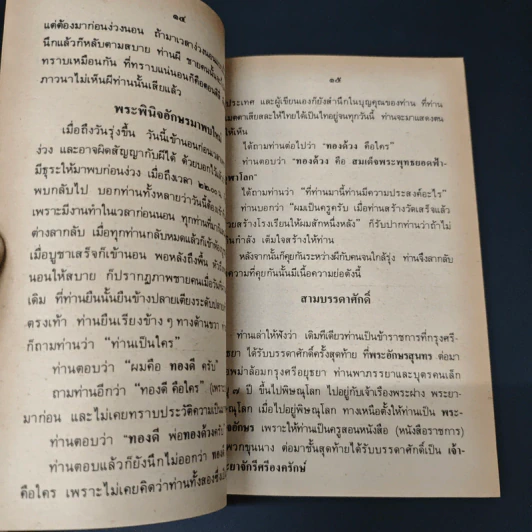 ๑๔
แต่ต้องมาก่อนง่วงนอน ถ้ามาเวลาง่วงนอน
นึกแล้วก็หลับตามสบาย ท่านผี ชายคนนั้น
ทราบเหมือนกัน ที่ทราบแน่นอนก็คือตอนตี
ภาวนาไม่เห็นผีท่านนั้นเสียแล้ว
พระพินิจอักษรมาพบใหม่
เมื่อถึงวันรุ่งขึ้น วันนี้เข้านอนก่อนเวลา
ง่วง และอาจผิดสัญญากับผีได้ ด้วยบอกไว้แล้ว
มีธุระให้มาพบก่อนง่วง เมื่อถึงเวลา ๒๒.๐๐ น.
พบกลับไป บอกท่านทั้งหลายว่าวันนี้ต้อง
เพราะมีงานทำในเวลาก่อนนอน ทุกท่านที่มา
ต่างลากลับ เมื่อทุกท่านกลับหมดแล้วก็เข้า
เมื่อบูชาเสร็จก็เข้านอน พอหลังถึงพื้น หัวถึง
นอนให้สบาย ก็ปรากฏภาพชายคนเมื่อวัน
เดิม ที่ท่านยืนนั้นยืนข้างปลายเตียงระดับปลาย
ตรงเท้า ท่านยืนเรียงข้าง ๆ ทางด้านขวา
ก็ถามท่านว่า “ท่านเป็นใคร”
ท่านตอบว่า “ผมคือ ทองดี ครับ”
ถามท่านอีกว่า “ทองดี คือใคร” (เพราะ
มาก่อน และไม่เคยทราบประวัติความเป็นมา
ท่านตอบว่า “ทองดี พ่อทองด้วงครับ”
ท่านตอบแล้วก็ยังนึกไม่ออกว่า ทองด้วง
คือใคร เพราะไม่เคยคิดว่าท่านทั้งสองซึ่ง
๑๕
ประเทศ และผู้เขียนเองก็ยังสำนึกในบุญคุณของท่าน ที่ท่าน
เมตตาเสียสละให้ไทยได้เป็นไทอยู่จนทุกวันนี้ ท่านจะมาแสดงตน
ให้เห็น
ได้ถามท่านต่อไปว่า “ทองด้วง คือใคร”
ท่านตอบว่า “ทองด้วง คือ สมเด็จพระพุทธยอดฟ้า-
จุฬาโลก”
ได้ถามท่านว่า “ที่ท่านมานี้ท่านมีความประสงค์อะไร”
ท่านบอกว่า “ผมเป็นครูครับ เมื่อท่านสร้างวัดเสร็จแล้ว
ช่วยสร้างโรงเรียนให้ผมสักหนึ่งหลัง” ก็รับปากท่านว่าถ้าไม่
เกินกำลัง เต็มใจสร้างให้ท่าน
หลังจากนั้นก็คุยกันระหว่างผีกับคนจนใกล้รุ่ง ท่านจึงลากลับ
ความที่คุยกันนั้นมีเนื้อความย่อดังนี้
สามบรรดาศักดิ์
ท่านเล่าให้ฟังว่า เดิมทีเดียวท่านเป็นข้าราชการที่กรุงศรี-
อยุธยา ได้รับบรรดาศักดิ์ครั้งสุดท้าย ที่ พระอักษรสุนทร ต่อมา
พม่าล้อมกรุงศรีอยุธยา ท่านพาภรรยาและบุตรคนเล็ก
๗ ปี ขึ้นไปพิษณุโลก ไปอยู่กับเจ้าเรืองพระฝาง พระยา-
พิษณุโลก เมื่อไปอยู่พิษณุโลก ทางเหนือตั้งให้ท่านเป็น พระ-
พินิจอักษร เพราะให้ท่านเป็นครูสอนหนังสือ (หนังสือราชการ)
พวกขุนนาง ต่อมาชั้นสุดท้ายได้รับบรรดาศักดิ์เป็น เจ้า-
พระยาจักรีศรีองครักษ์